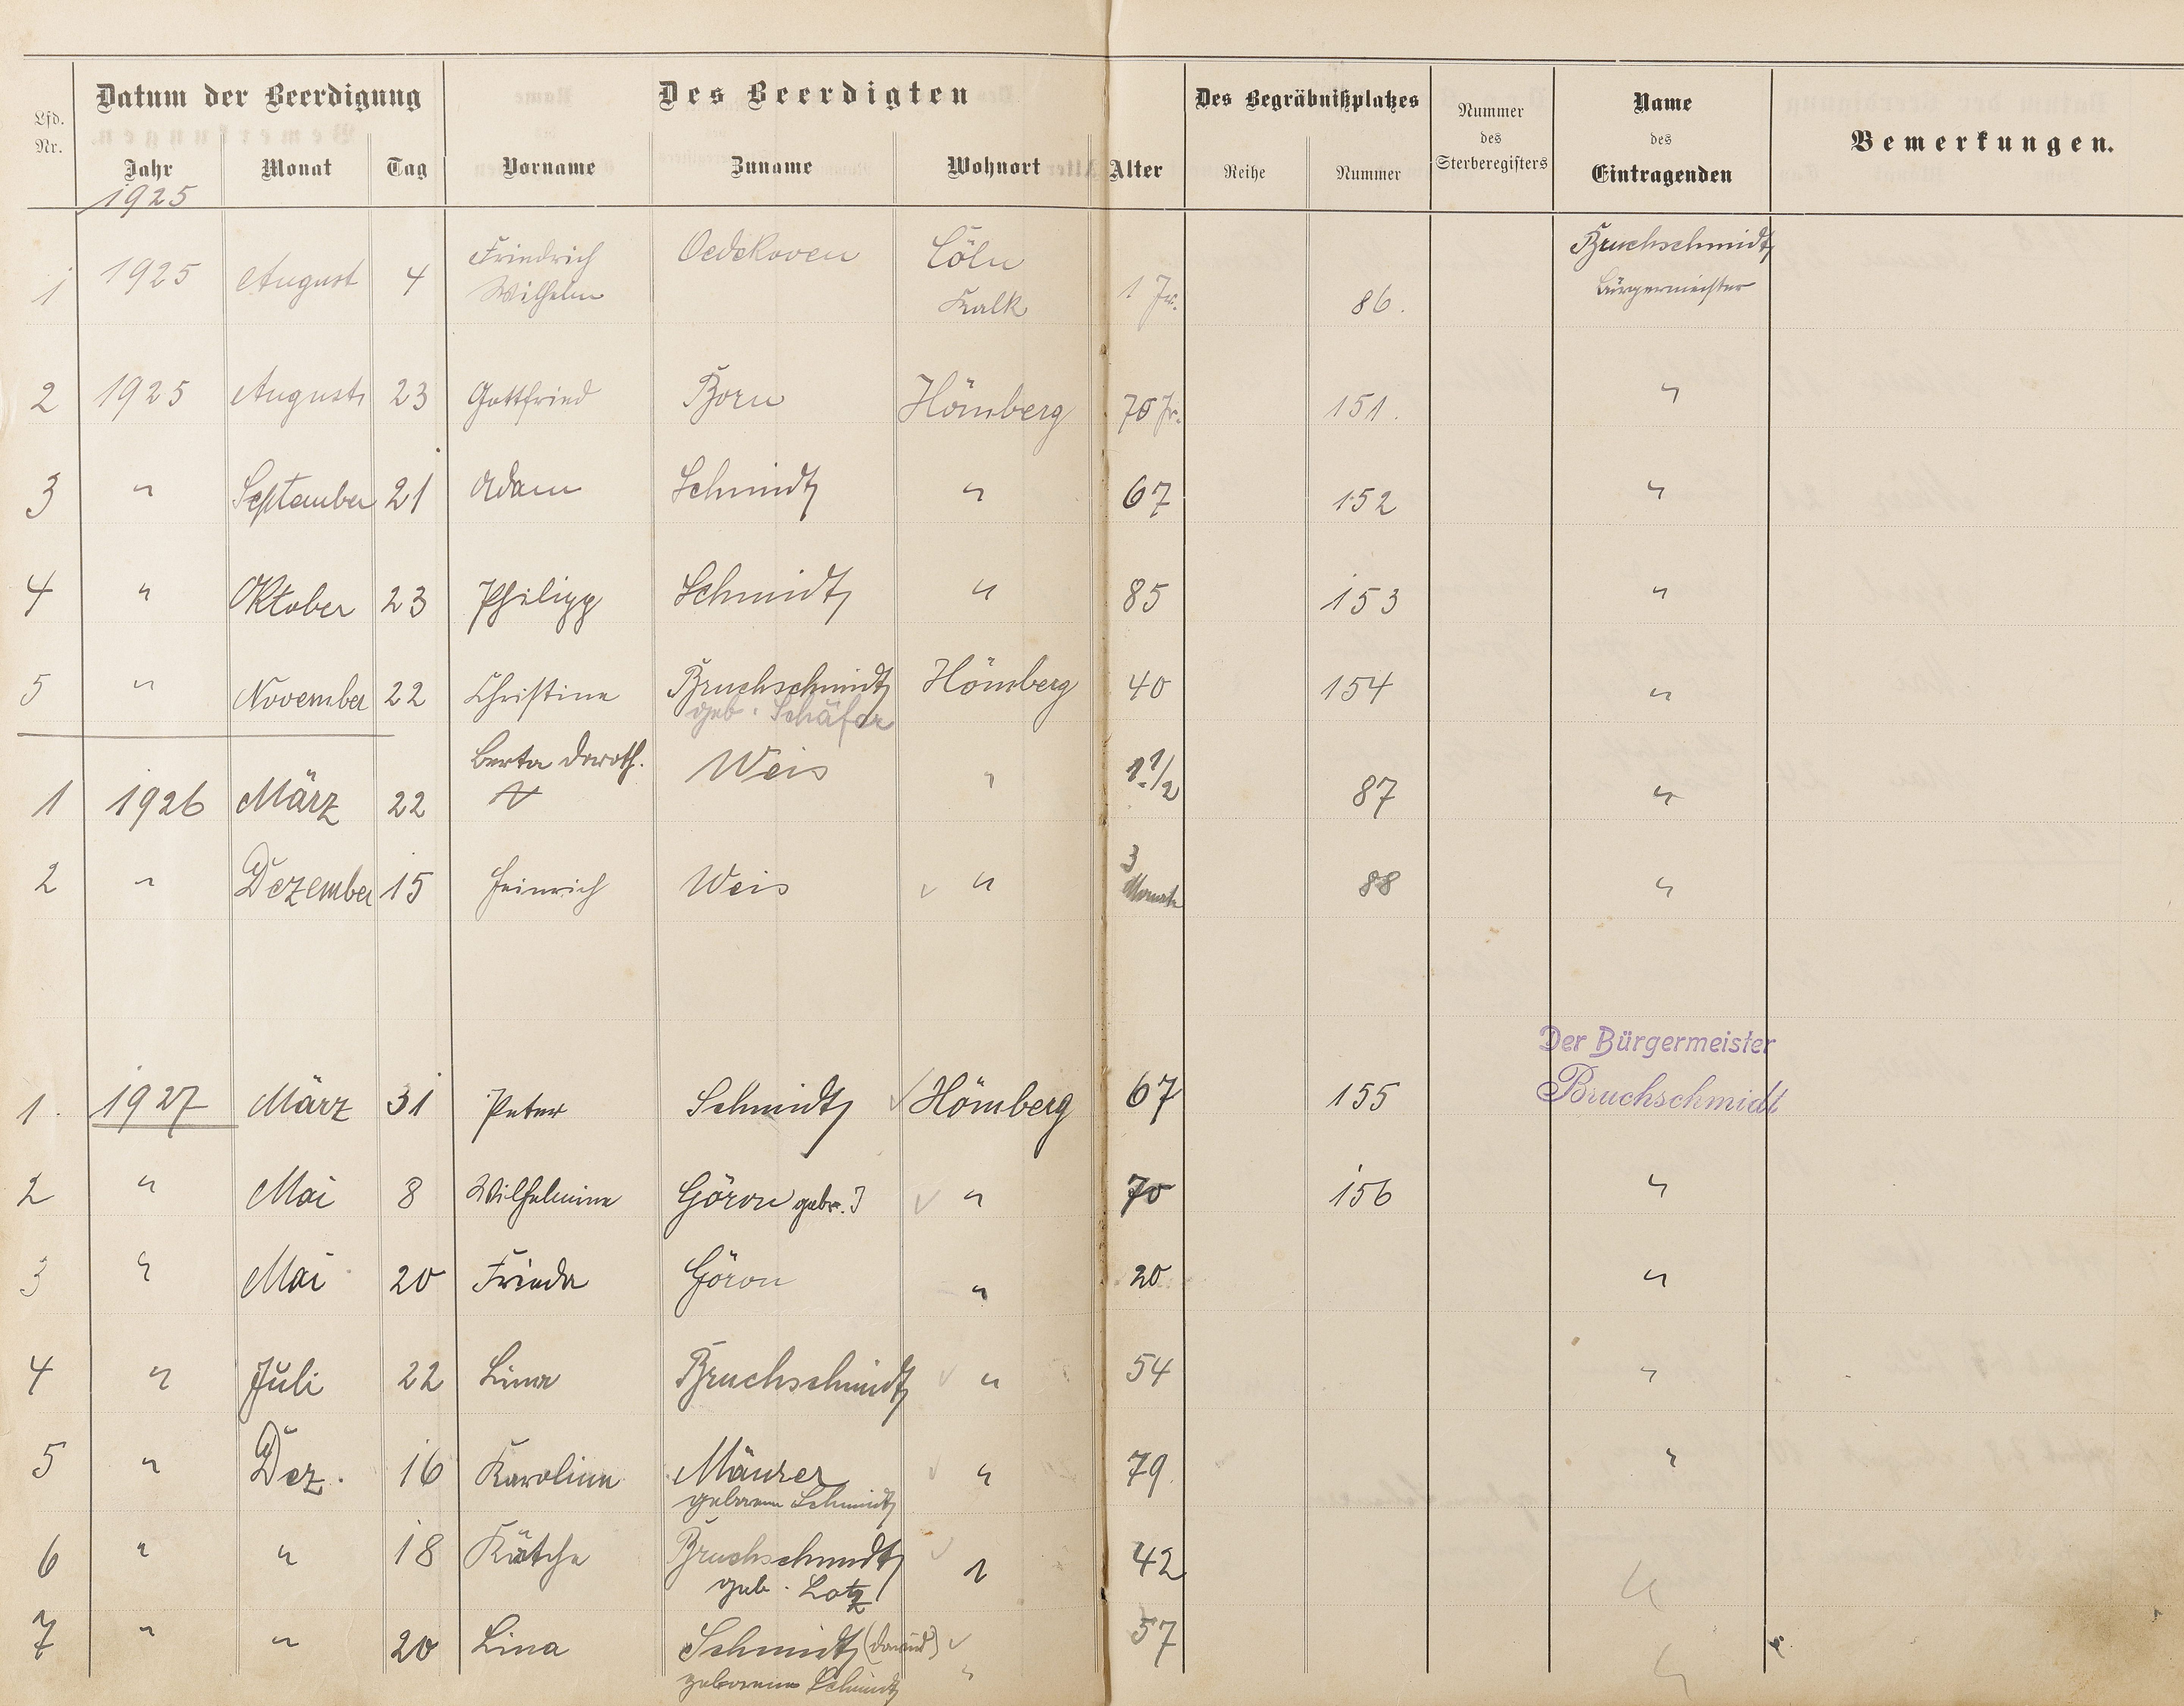 Lfd. Nr. Datum der Beerdigung Des Beerdigten Des Begräbnißplatzes Nummer des Sterberegisters Name des Eintragenden Bemerkungen.
Jahr Monat Tag Vorname Zuname Wohnort Alter Reihe Nummer
1925
1 1925 August 4 Friedrich Wilhelm Oedekoven Cöln Kalk 1 Jr. 86. Bruchschmidt Bürgermeister
2 1925 August 23 Gottfried Born Hömberg 70 Jr. 151. "
3 " September 21 Adam Schmidt " 67 152 "
4 " Oktober 23 Philipp Schmidt " 85 153 "
5 " November 22 Christine Bruchschmidt geb. Schäfer Hömberg 40 154 "
1 1926 März 22 Berta Doroth. Weis " 1 1/2 87 "
2 " Dezember 15 Heinrich Weis " 3 Monate 88 "
Der Bürgermeister
1. 1927 März 31 Peter Schmidt Hömberg 67 155 Bruchschmidt
2 " Mai 8 Wilhelmine Göron " 70 156 "
3 " Mai 20 Frieda Göron " 20 "
4 " Juli 22 Lina Bruchschmidt " 54 "
5 " Dez. 16 Karoline Mäurer geborene Schmidt " 79 "
6 " " 18 Kätche Bruchschmidt geb. Lotz " 42 "
7 " " 20 Lina Schmidt geborene Schmidt " 57 "